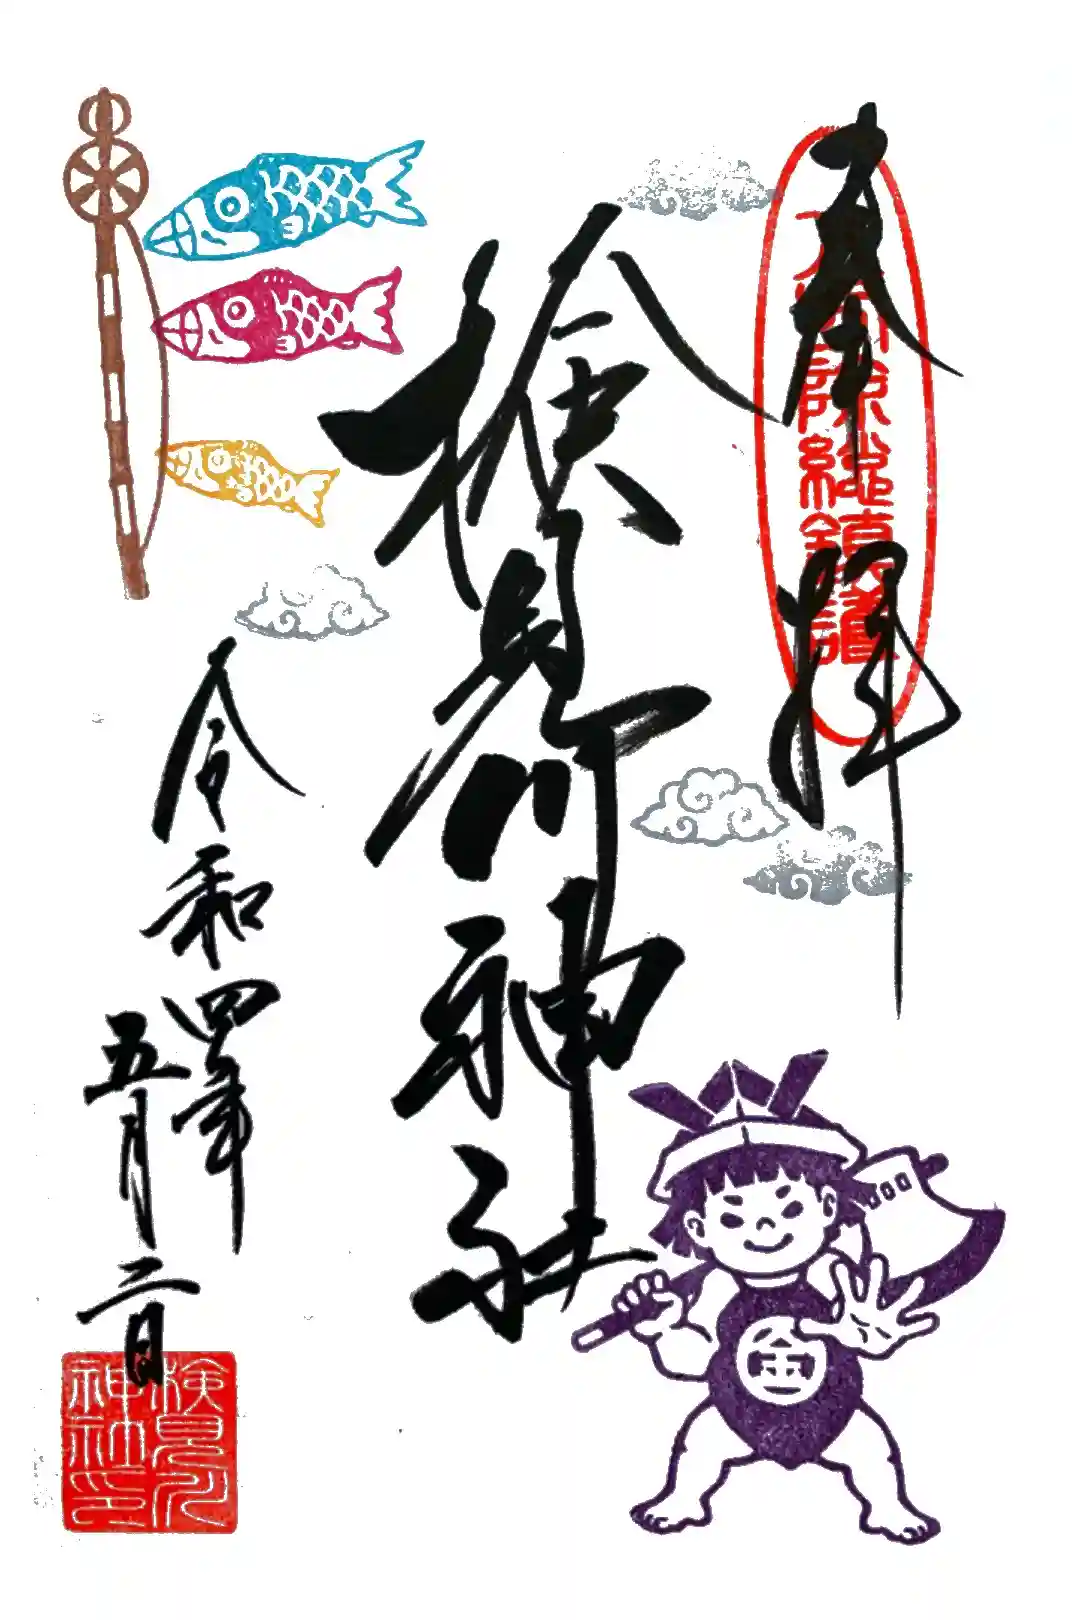 奉拝
八方除総鎮護
検見川神社
令和四年
五月二日
検見川
神社印
金